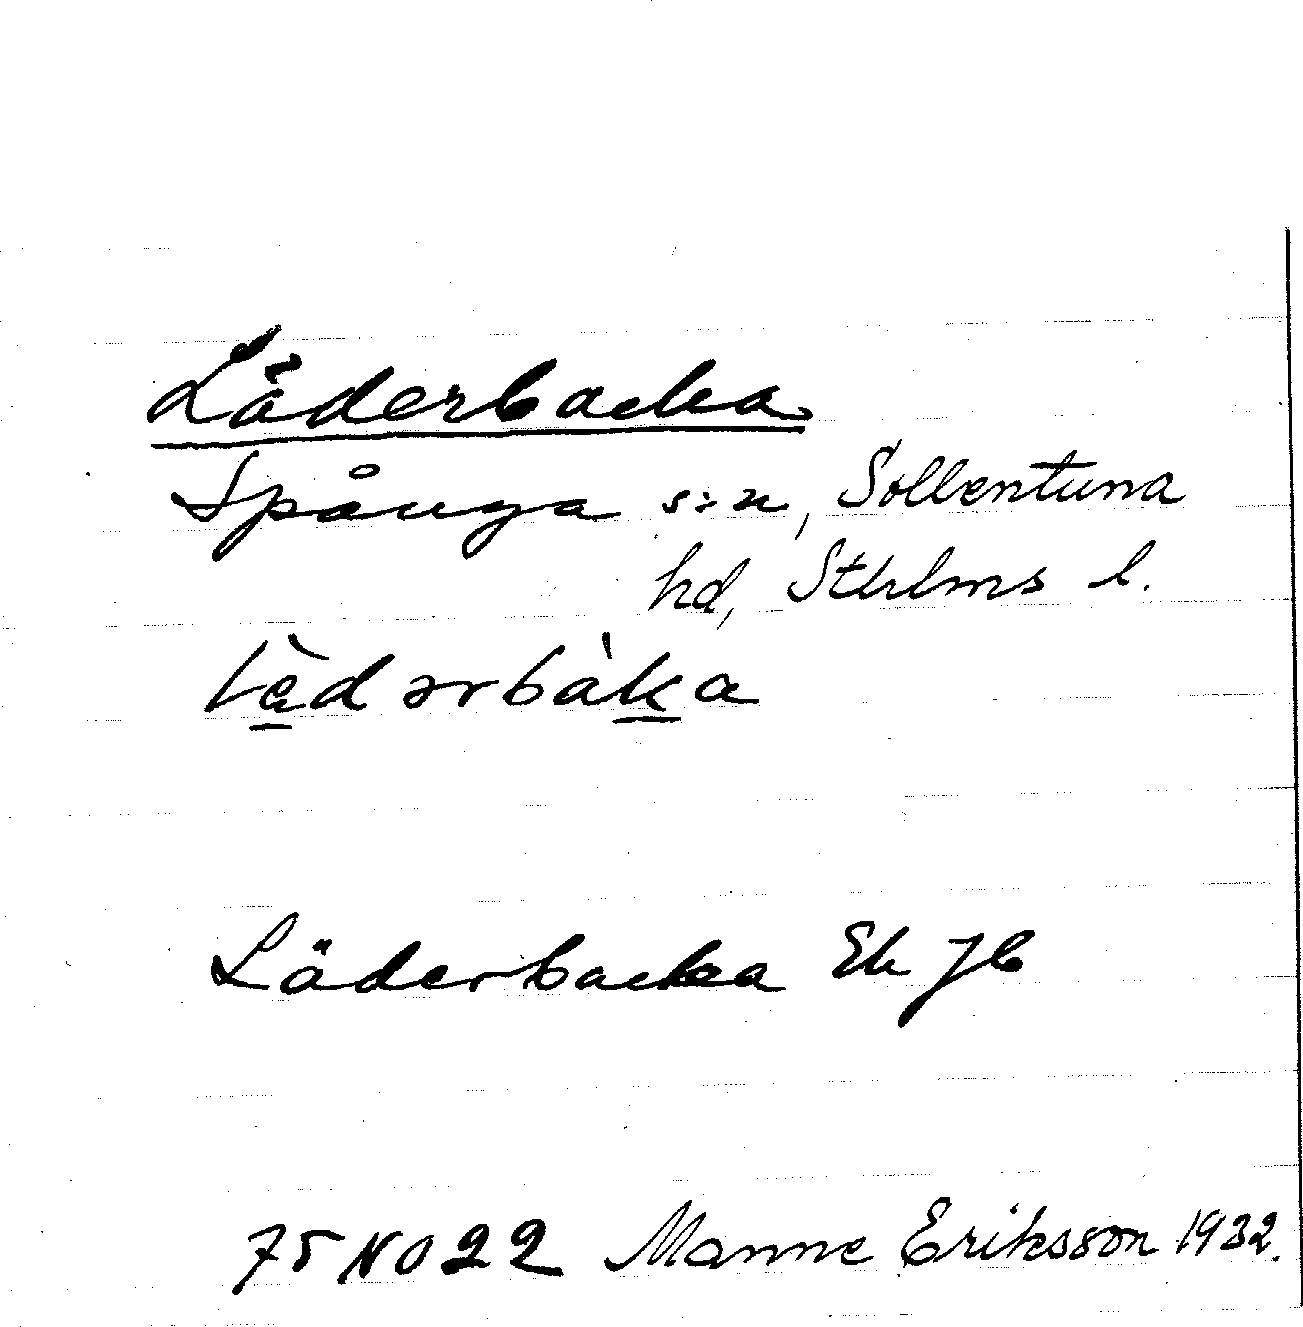 Läderbacka
Spånga s:n, Sollentuna
hd, Sthlms l.
lɛ̀dərbàka
Läderbacka Ek Jb
75 NO 22 Manne Eriksson 1932.